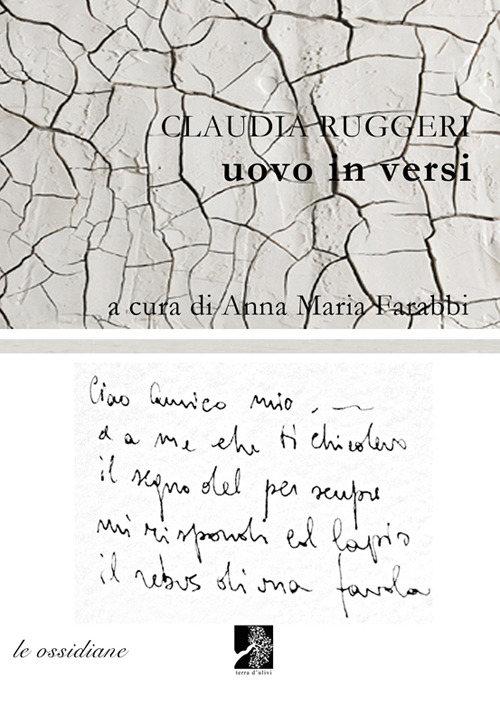 CLAUDIA RUGGERI
uovo in versi
a cura di Anna Maria Farabbi
Ciao Amico mio, —
a me che ti chiedevo
il segno del per sempre
mi rispondi col lapis
il rebus di una favola
le ossidiane
terra d'ulivi